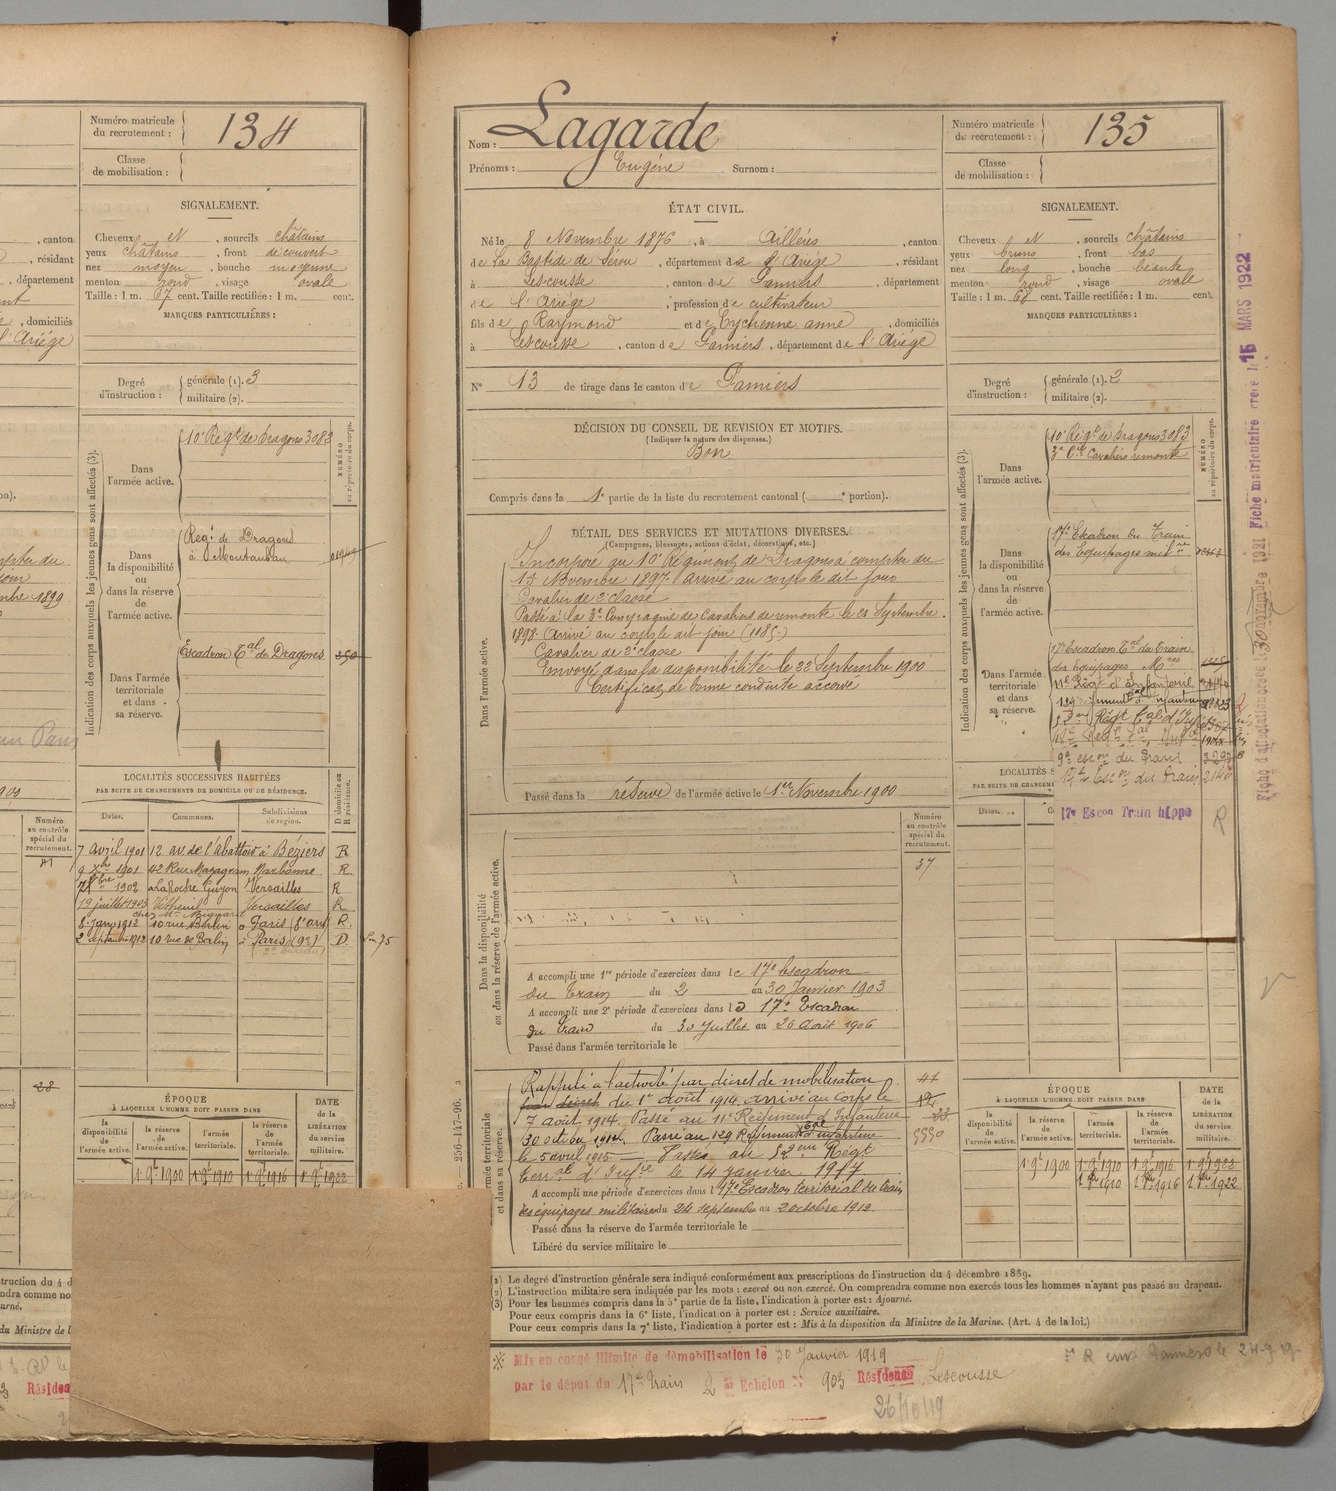 Numéro matricule
du recrutement :
134
Classe
de mobilisation :
SIGNALEMENT.
Cheveux N , sourcils châtains
yeux châtains , front découvert
nez moyen , bouche moyenne
menton rond , visage ovale
Taille : 1 m. 67 cent. Taille rectifiée : 1 m. cent.
MARQUES PARTICULIÈRES :
, canton
, résidant
, département
, domiciliés
l'Ariége
Degré
d'instruction :
générale (1). 3
militaire (2).
Indication des corps auxquels les jeunes gens sont affectés (3).
Dans
l'armée active.
10e Régt de Dragons 3083
NUMÉRO
au répertoire du corps.
Dans
la disponibilité
ou
dans la réserve
de
l'armée active.
Régt de Dragons
à Montauban
Dans l'armée
territoriale
et dans
sa réserve.
Escadron Tal de Dragons 250
LOCALITÉS SUCCESSIVES HABITÉES
PAR SUITE DE CHANGEMENTS DE DOMICILE OU DE RÉSIDENCE.
Dates. Communes. Subdivisions
de région.
D domicile ou
R résidence.
Numéro
au contrôle
spécial du
recrutement.
7 avril 1901 12 av. de l'abattoir à Béziers R
1901 42 Rue Mazagran Narbonne R
1902 La Roche Guyon Versailles R
19 juillet 1903 Vétheuil Versailles R
8 Janv 1912 10 rue Berlin à Paris (8e arr) R.
2 septembre 1912 10 rue de Berlin à Paris (9e) D.
28
ÉPOQUE
À LAQUELLE L'HOMME DOIT PASSER DANS
DATE
de la
LIBÉRATION
du service
militaire.
la
disponibilité
de
l'armée active.
la réserve
de
l'armée active.
l'armée
territoriale.
la réserve
de
l'armée
territoriale.
1900 1910 1916 1922
Nom : Lagarde
Prénoms : Eugéne Surnom :
ÉTAT CIVIL.
Né le 8 Novembre 1876 , à Aillères , canton
de La Bastide de Sérou , département de l'Ariége , résidant
à Lescousse , canton de Pamiers , département
de l'Ariége , profession de cultivateur
fils de Raymond et de Eychenne anne , domiciliés
à Lescousse , canton de Pamiers , département de l'Ariége
N° 13 de tirage dans le canton de Pamiers
DÉCISION DU CONSEIL DE REVISION ET MOTIFS.
(Indiquer la nature des dispenses.)
Bon
Compris dans la 1e partie de la liste du recrutement cantonal ( e portion).
DÉTAIL DES SERVICES ET MUTATIONS DIVERSES.
(Campagnes, blessures, actions d'éclat, décorations, etc.)
Dans l'armée active.
Incorporé au 10e Régiment de Dragons à compter du
15 Novembre 1897. Arrivé au corps le dit jour
Cavalier de 2e classe
Passé à la 3e Compagnie de Cavaliers de remonte le 21 Septembre
1898. Arrivé au corps le dit jour (1185.)
Cavalier de 2e classe
Envoyé dans la disponibilité le 22 Septembre 1900
Certificat de bonne conduite accordé
Passé dans la réserve de l'armée active le 1er Novembre 1900
Dans la disponibilité
ou dans la réserve de l'armée active.
Numéro
au contrôle
spécial du
recrutement.
37
A accompli une 1re période d'exercices dans le 17e Escadron
du Train du 2 au 30 Janvier 1903
A accompli une 2e période d'exercices dans le 17e Escadron
du Train du 30 Juillet au 26 Août 1906
Passé dans l'armée territoriale le
Rappelé à l'activité par décret de mobilisation
du 1er août 1914. arrivé au Corps le
7 août 1914. Passé au 11e Régiment d'Infanterie
30 octobre 1914. Passé au 129 Régiment Tal d'infanterie
le 5 avril 1915 Passé au 82eme Régt
Terral d'Infie le 14 janvier 1917
41
5550
A accompli une période d'exercices dans l 17e Escadron territorial du train
des équipages militaires du 24 septembre au 2 octobre 1912
Passé dans la réserve de l'armée territoriale le
Libéré du service militaire le
256-147-96.
(1) Le degré d'instruction générale sera indiqué conformément aux prescriptions de l'instruction du 4 décembre 1889.
(2) L'instruction militaire sera indiquée par les mots : exercé ou non exercé. On comprendra comme non exercés tous les hommes n'ayant pas passé au drapeau.
(3) Pour les hommes compris dans la 5e partie de la liste, l'indication à porter est : Ajourné.
Pour ceux compris dans la 6e liste, l'indication à porter est : Service auxiliaire.
Pour ceux compris dans la 7e liste, l'indication à porter est : Mis à la disposition du Ministre de la Marine. (Art. 4 de la loi.)
Mis en congé illimité de démobilisation le 30 Janvier 1919
par le dépôt du 17e Train 2 Echelon N° 903 Résidence Lescousse
26/10/19
Numéro matricule
du recrutement :
135
Classe
de mobilisation :
SIGNALEMENT.
Cheveux N , sourcils châtains
yeux bruns , front bas
nez long , bouche béante
menton rond , visage ovale
Taille : 1 m. 68 cent. Taille rectifiée : 1 m. cent.
MARQUES PARTICULIÈRES :
Degré
d'instruction :
générale (1). 2
militaire (2).
Indication des corps auxquels les jeunes gens sont affectés (3).
Dans
l'armée active.
10e Régt de Dragons 3083
3e Cie Cavaliers remonte
NUMÉRO
au répertoire du corps.
Dans
la disponibilité
ou
dans la réserve
de
l'armée active.
17e Escadron du Train
des équipages milres
Dans l'armée
territoriale
et dans
sa réserve.
17e Escadron Tal du Train
des équipages Mres
11e Régt d'Infanterie
129 régiment Tal d'Infanterie
82me Régt Tal d'Infie
9e escon du Train
17e Escon du Train 2140
LOCALITÉS S
PAR SUITE DE CHANGEM
Dates.
17e Escon Train hippo
R
ÉPOQUE
À LAQUELLE L'HOMME DOIT PASSER DANS
DATE
de la
LIBÉRATION
du service
militaire.
la
disponibilité
de
l'armée active.
la réserve
de
l'armée active.
l'armée
territoriale.
la réserve
de
l'armée
territoriale.
1900 1910 1916 1922
1910 1916 1922
Fiche matriculaire créée le 15 MARS 1922